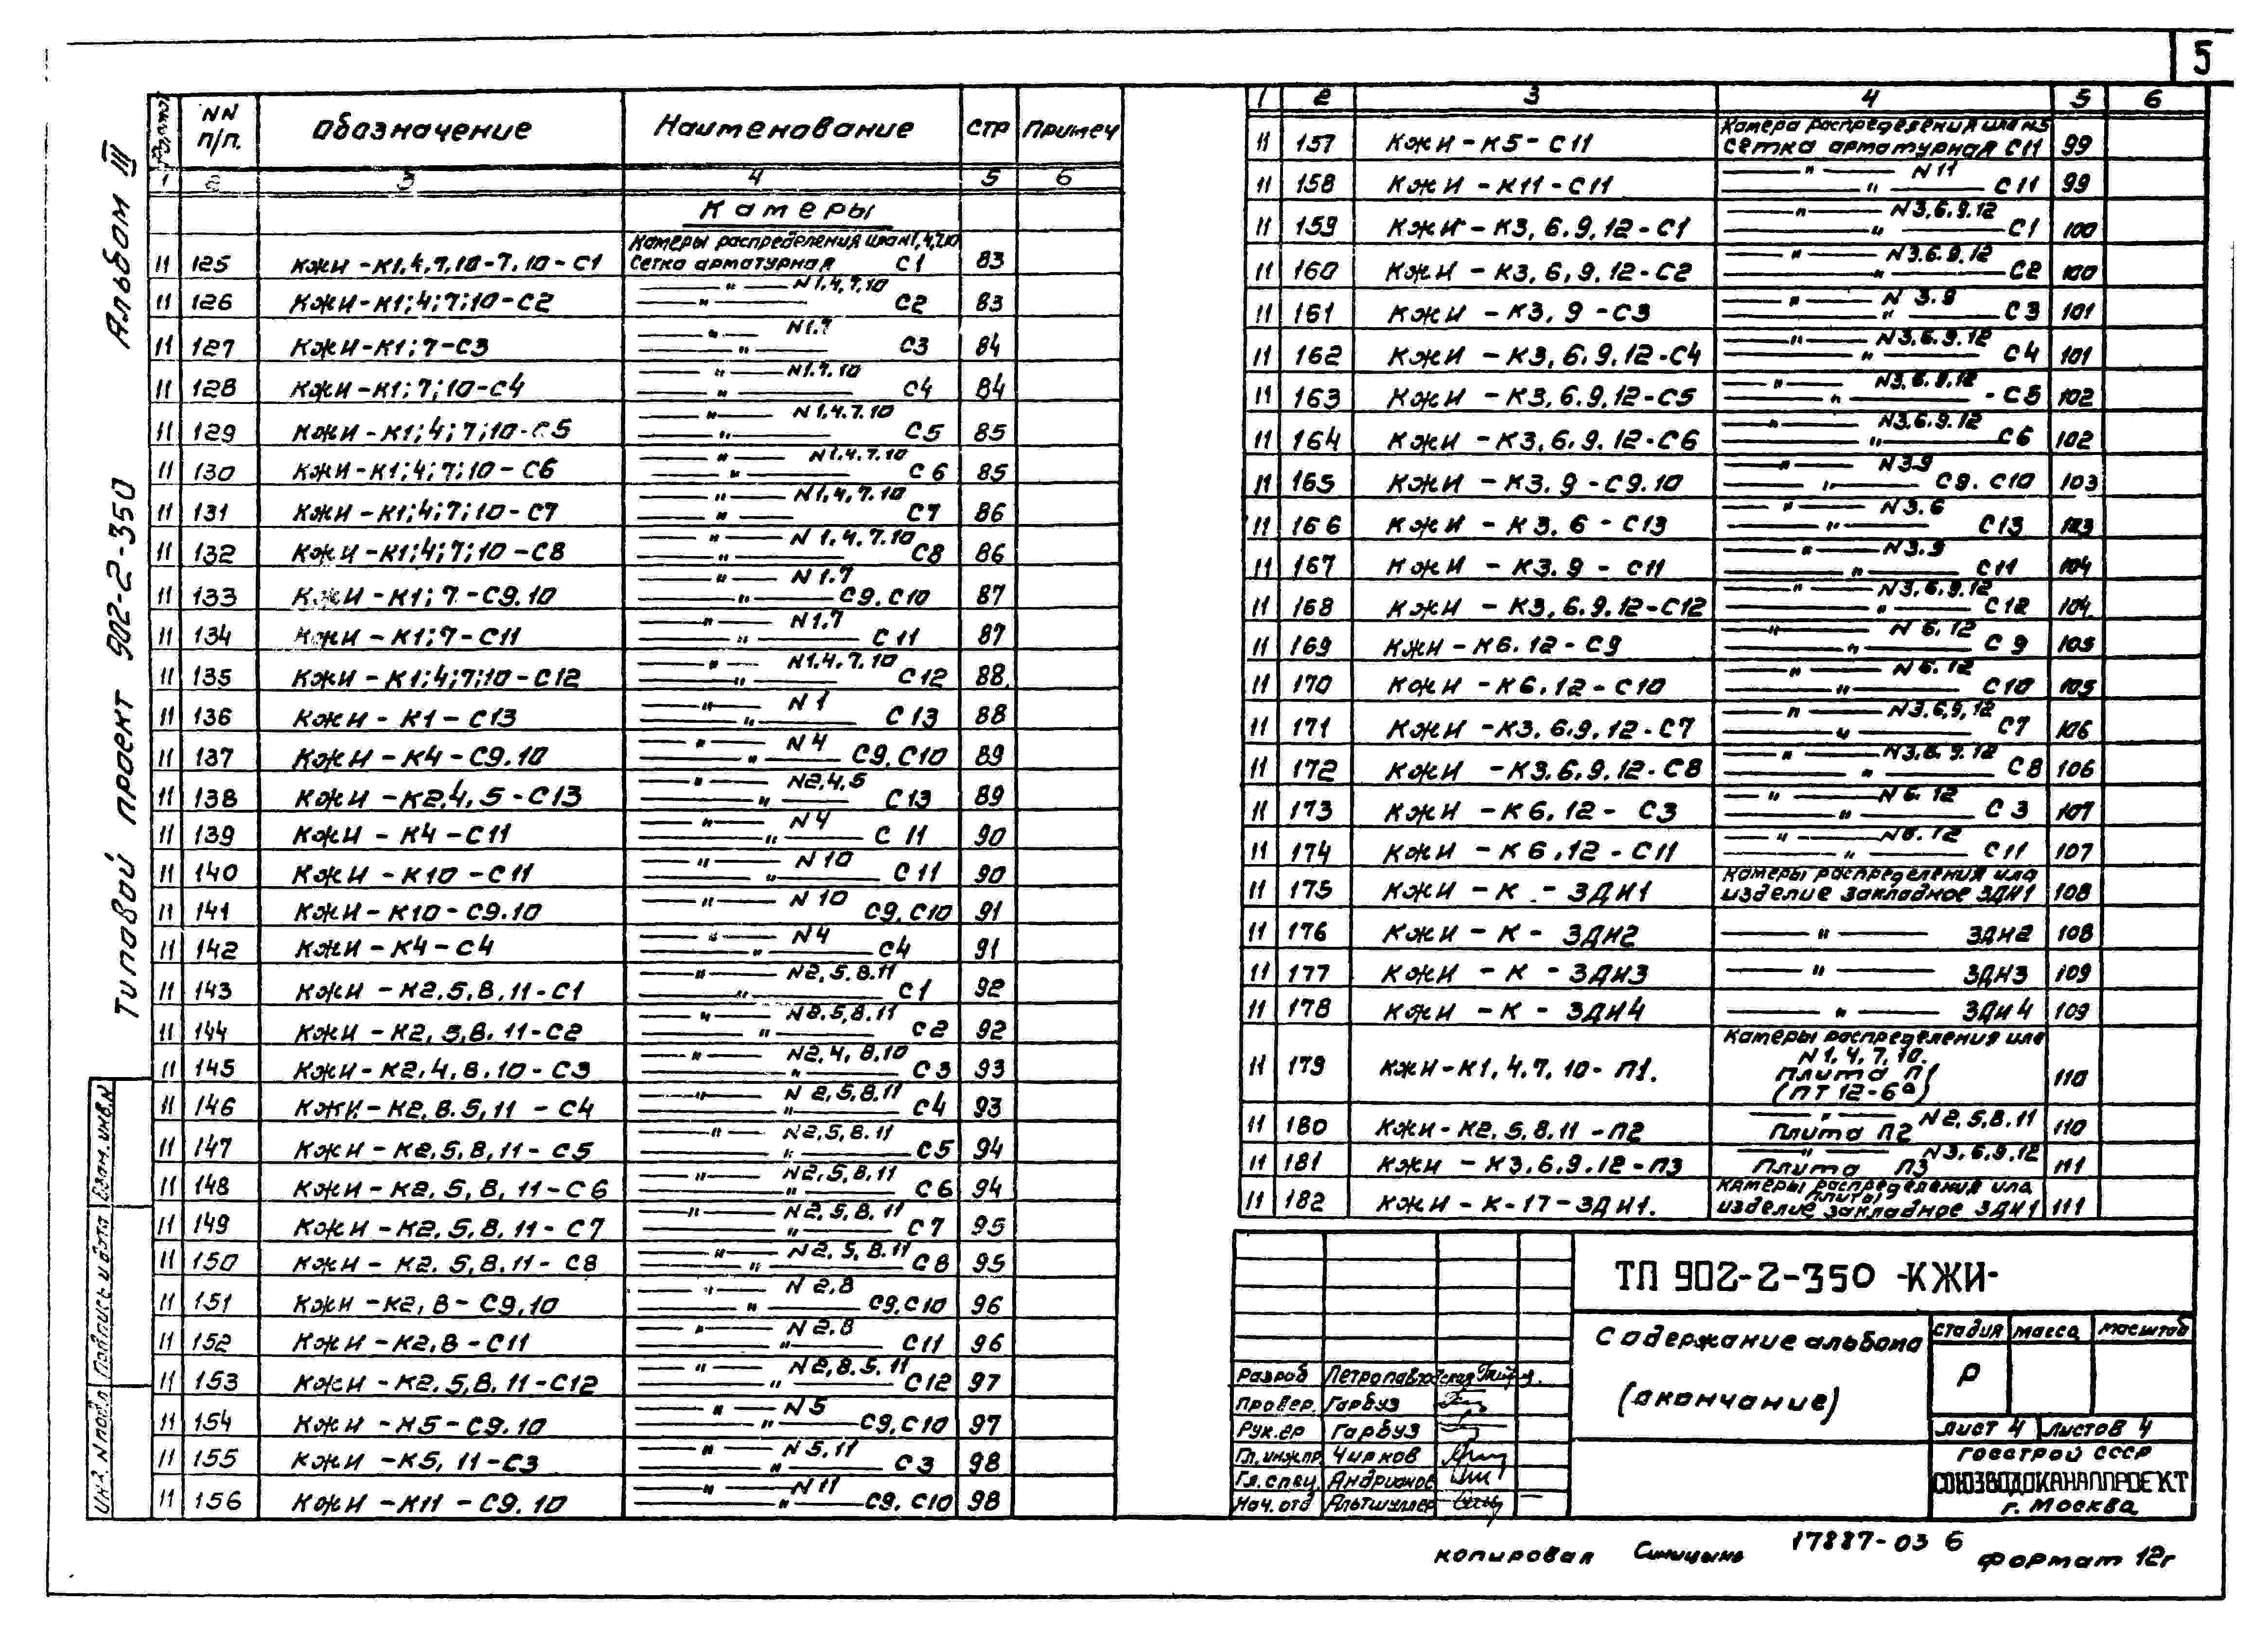 5
Альбом III
Типовой проект 902-2-350
Формат NN п/п. Обозначение Наименование Стр Примеч
1 2 3 4 5 6
Камеры
Камеры распределения ила N1,4,7,10
11 125 КЖИ-К1,4,7,10-7.10-С1 Сетка арматурная С1 83
11 126 КЖИ-К1;4;7;10-С2 —"— N1,4,7,10 —"— С2 83
11 127 КЖИ-К1;7-С3 —"— N1.7 —"— С3 84
11 128 КЖИ-К1;7;10-С4 —"— N1.7.10 —"— С4 84
11 129 КЖИ-К1;4;7;10-С5 —"— N1,4.7.10 —"— С5 85
11 130 КЖИ-К1;4;7;10-С6 —"— N1,4.7.10 —"— С6 85
11 131 КЖИ-К1;4;7;10-С7 —"— N1,4,7.10 —"— С7 86
11 132 КЖИ-К1;4;7;10-С8 —"— N1,4.7.10 —"— С8 86
11 133 КЖИ-К1;7-С9.10 —"— N1.7 —"— С9.С10 87
11 134 КЖИ-К1;7-С11 —"— N1,7 —"— С11 87
11 135 КЖИ-К1;4;7;10-С12 —"— N1.4.7.10 —"— С12 88
11 136 КЖИ-К1-С13 —"— N1 —"— С13 88
11 137 КЖИ-К4-С9.10 —"— N4 —"— С9,С10 89
11 138 КЖИ-К2,4,5-С13 —"— N2,4,5 —"— С13 89
11 139 КЖИ-К4-С11 —"— N4 —"— С11 90
11 140 КЖИ-К10-С11 —"— N10 —"— С11 90
11 141 КЖИ-К10-С9.10 —"— N10 —"— С9,С10 91
11 142 КЖИ-К4-С4 —"— N4 —"— С4 91
11 143 КЖИ-К2.5,8,11-С1 —"— N2,5,8.11 —"— С1 92
11 144 КЖИ-К2,5,8.11-С2 —"— N2.5,8.11 —"— С2 92
11 145 КЖИ-К2,4,8.10-С3 —"— N2,4,8,10 —"— С3 93
11 146 КЖИ-К2,8.5,11-С4 —"— N2,5,8.11 —"— С4 93
11 147 КЖИ-К2,5,8,11-С5 —"— N2,5,8.11 —"— С5 94
11 148 КЖИ-К2,5,8,11-С6 —"— N2,5,8,11 —"— С6 94
11 149 КЖИ-К2.5,8.11-С7 —"— N2,5,8.11 —"— С7 95
11 150 КЖИ-К2.5,8.11-С8 —"— N2,5,8.11 —"— С8 95
11 151 КЖИ-К2,8-С9,10 —"— N2,8 —"— С9,С10 96
11 152 КЖИ-К2,8-С11 —"— N2.8 —"— С11 96
11 153 КЖИ-К2.5,8.11-С12 —"— N2,8.5.11 —"— С12 97
11 154 КЖИ-К5-С9.10 —"— N5 —"— С9,С10 97
11 155 КЖИ-К5,11-С3 —"— N5,11 —"— С3 98
11 156 КЖИ-К11-С9.10 —"— N11 —"— С9,С10 98
1 2 3 4 5 6
Камера распределения ила N5
11 157 КЖИ-К5-С11 Сетка арматурная С11 99
11 158 КЖИ-К11-С11 —"— N11 —"— С11 99
11 159 КЖИ-К3,6.9,12-С1 —"— N3,6.9.12 —"— С1 100
11 160 КЖИ-К3,6,9.12-С2 —"— N3.6.9.12 —"— С2 100
11 161 КЖИ-К3,9-С3 —"— N3.9 —"— С3 101
11 162 КЖИ-К3,6.9.12-С4 —"— N3,6.9.12 —"— С4 101
11 163 КЖИ-К3,6.9,12-С5 —"— N3,6.9.12 —"— -С5 102
11 164 КЖИ-К3,6.9.12-С6 —"— N3,6.9.12 —"— С6 102
11 165 КЖИ-К3.9-С9.10 —"— N3.9 —"— С9.С10 103
11 166 КЖИ-К3.6-С13 —"— N3.6 —"— С13 103
11 167 КЖИ-К3.9-С11 —"— N3.9 —"— С11 104
11 168 КЖИ-К3,6.9.12-С12 —"— N3,6,9.12 —"— С12 104
11 169 КЖИ-К6.12-С9 —"— N6.12 —"— С9 105
11 170 КЖИ-К6.12-С10 —"— N6.12 —"— С10 105
11 171 КЖИ-К3.6.9.12-С7 —"— N3.6,9,12 —"— С7 106
11 172 КЖИ-К3.6,9.12-С8 —"— N3,6.9.12 —"— С8 106
11 173 КЖИ-К6.12-С3 —"— N6.12 —"— С3 107
11 174 КЖИ-К6.12-С11 —"— N6.12 —"— С11 107
Камеры распределения ила
11 175 КЖИ-К-ЗДИ1 изделие закладное ЗДИ1 108
11 176 КЖИ-К-ЗДИ2 —"— ЗДИ2 108
11 177 КЖИ-К-ЗДИ3 —"— ЗДИ3 109
11 178 КЖИ-К-ЗДИ4 —"— ЗДИ4 109
Камеры распределения ила
N1,4,7,10.
11 179 КЖИ-К1,4.7,10-П1. Плита П1 110
(ПТ 12-6а)
11 180 КЖИ-К2,5,8.11-П2 —"— N2,5,8.11 Плита П2 110
11 181 КЖИ-К3,6.9.12-П3 —"— N3,6.9.12 Плита П3 111
Камеры распределения ила
плиты
11 182 КЖИ-К-17-ЗДИ1. изделие закладное ЗДИ1 111
ТП 902-2-350 -КЖИ-
Содержание альбома
(окончание)
Стадия Масса Масштаб
Р
Лист 4 Листов 4
Госстрой СССР
СОЮЗВОДОКАНАЛПРОЕКТ
г. Москва
Разраб Петропавловская
Провер. Гарбуз
Рук.гр Гарбуз
Гл.инж.пр. Чирков
Гл.спец Андрианов
Нач.отд Альтшуллер
Взам.инв.N
Подпись и дата
Инв.N подл
17887-03 6
Копировал Синицына Формат 12г